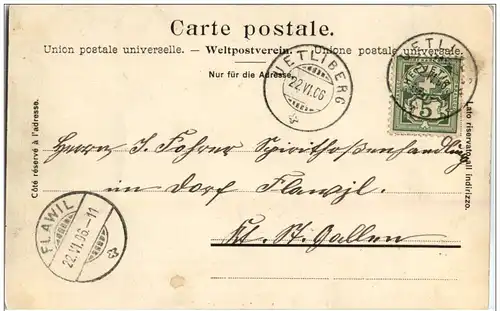 Carte postale.
Union postale universelle. — Weltpostverein. — Unione postale universale.
Nur für die Adresse.
UETLIBERG
22.VI.06
UETLI
5
Côté réservé à l'adresse.
Lato riservato all indirizzo.
Herrn J. Fohrer Spirithosenhandlung
im Dorf Flawyl.
Kt. St. Gallen
FLAWIL
22.VI.06.-11